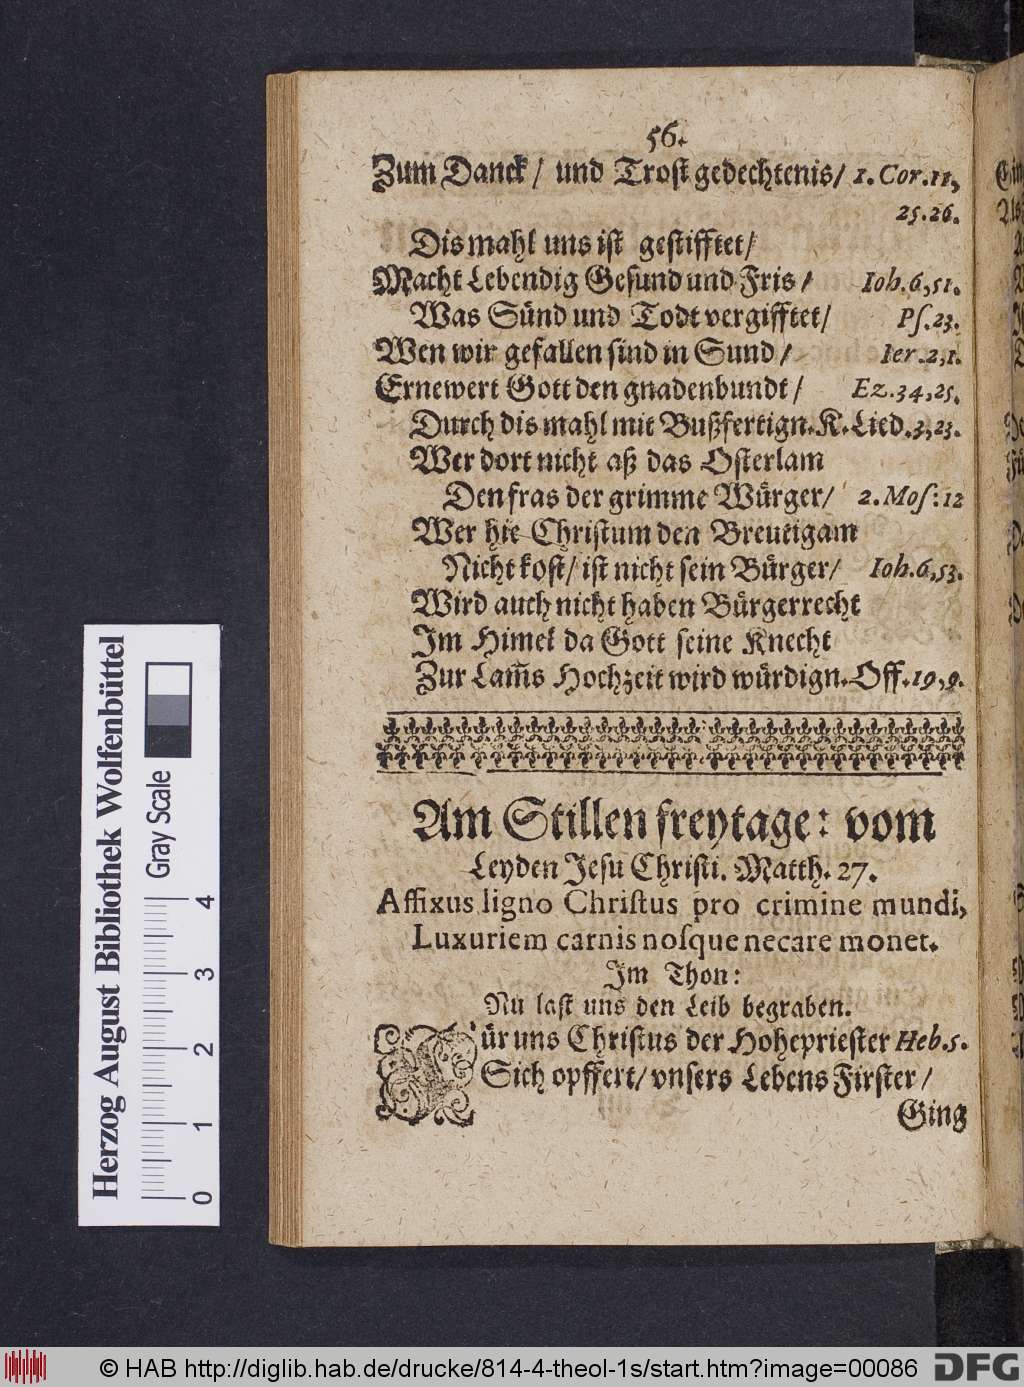 56.
Zum Danck / und Trost gedechtenis / 1. Cor. 11,
25. 26.
Dis mahl uns ist gestifftet /
Macht Lebendig Gesund und Fris / Ioh. 6, 51.
Was Sünd und Todt vergifftet / Pſ. 23.
Wen wir gefallen sind in Sund / Ier. 2, 1.
Ernewert Gott den gnadenbundt / Ez. 34, 25.
Durch dis mahl mit Bußfertign. K. Lied. 3, 23.
Wer dort nicht aß das Osterlam
Den fras der grimme Würger / 2. Moſ: 12
Wer hie Christum den Breutigam
Nicht kost / ist nicht sein Bürger / Ioh. 6, 53.
Wird auch nicht haben Bürgerrecht
Im Himel da Gott seine Knecht
Zur Lam̃s Hochzeit wird würdign. Off. 19, 9.
Am Stillen freytage: vom
Leyden Jesu Christi. Matth. 27.
Affixus ligno Chriſtus pro crimine mundi,
Luxuriem carnis noſque necare monet.
Im Thon:
Nu last uns den Leib begraben.
Für uns Christus der Hohepriester Heb. 5.
Sich opffert / vnsers Lebens Firster /
Ging
Herzog August Bibliothek Wolfenbüttel
Gray Scale
0 1 2 3 4
© HAB http://diglib.hab.de/drucke/814-4-theol-1s/start.htm?image=00086
DFG